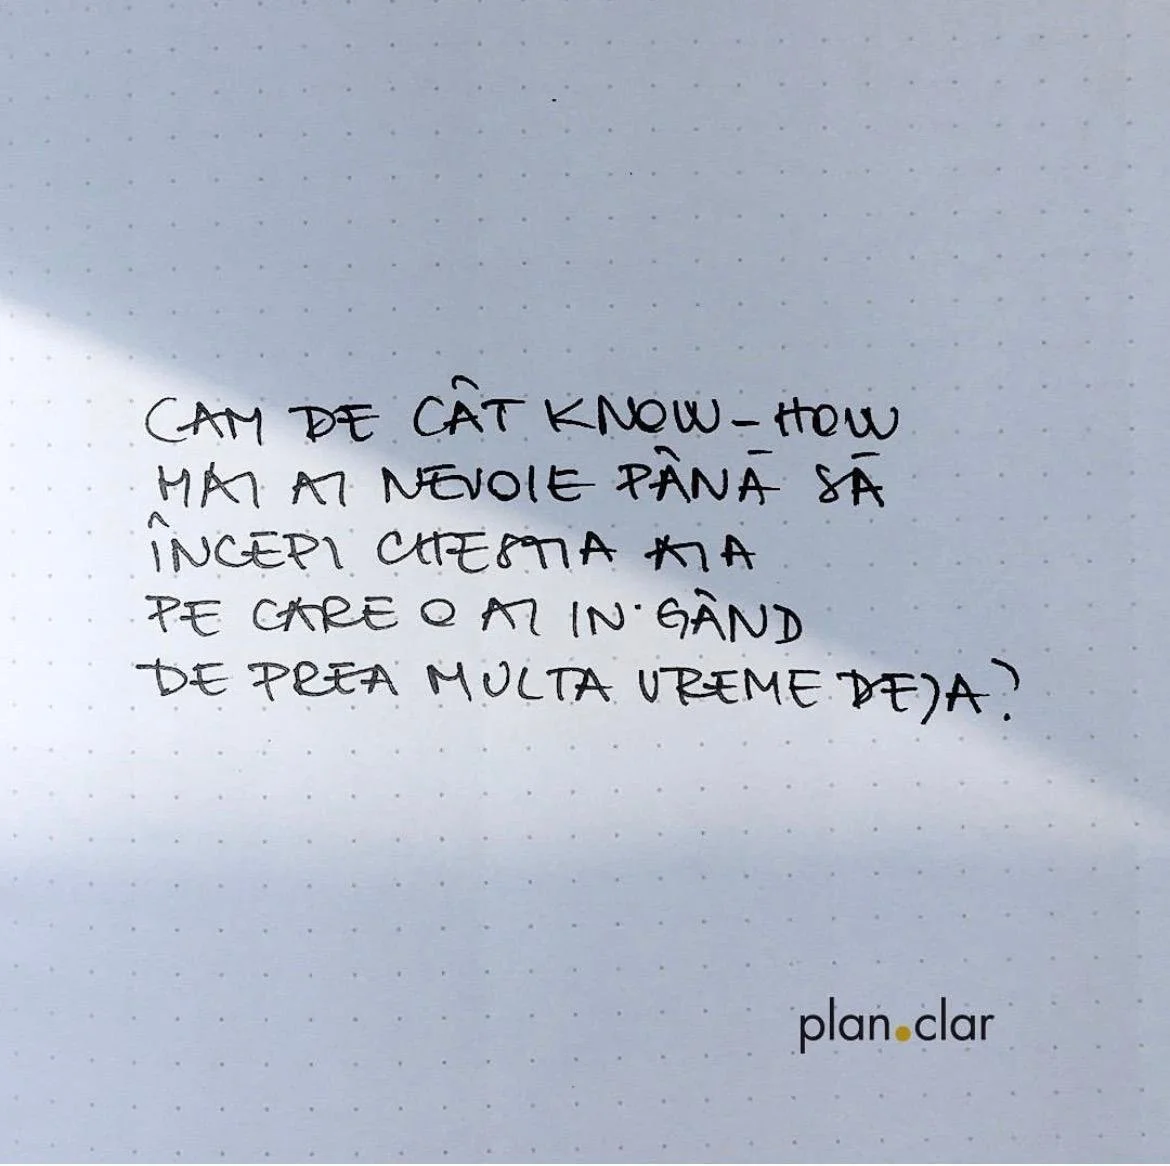 CAM DE CÂT KNOW-HOW
MAI AI NEVOIE PÂNĂ SĂ
ÎNCEPI CHESTIA AIA
PE CARE O AI IN GÂND
DE PREA MULTA VREME DEJA?
plan.clar